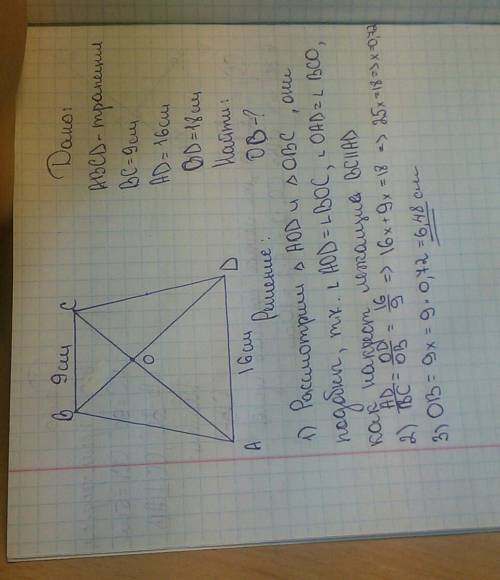 Дано:
ABCD - трапеция
BC = 9 см
AD = 16 см
BD = 18 см
Найти:
OB - ?
B 9 см C
O
A 16 см D
Решение:
1) Рассмотрим △ AOD и △ OBC, они
подобны, т.к. ∠ AOD = ∠ BOC, ∠ OAD = ∠ BCO,
как накрест лежащие BC || AD
2) AD/BC = OD/OB = 16/9 => 16x + 9x = 18 => 25x = 18 => x = 0,72
3) OB = 9x = 9 · 0,72 = 6,48 см